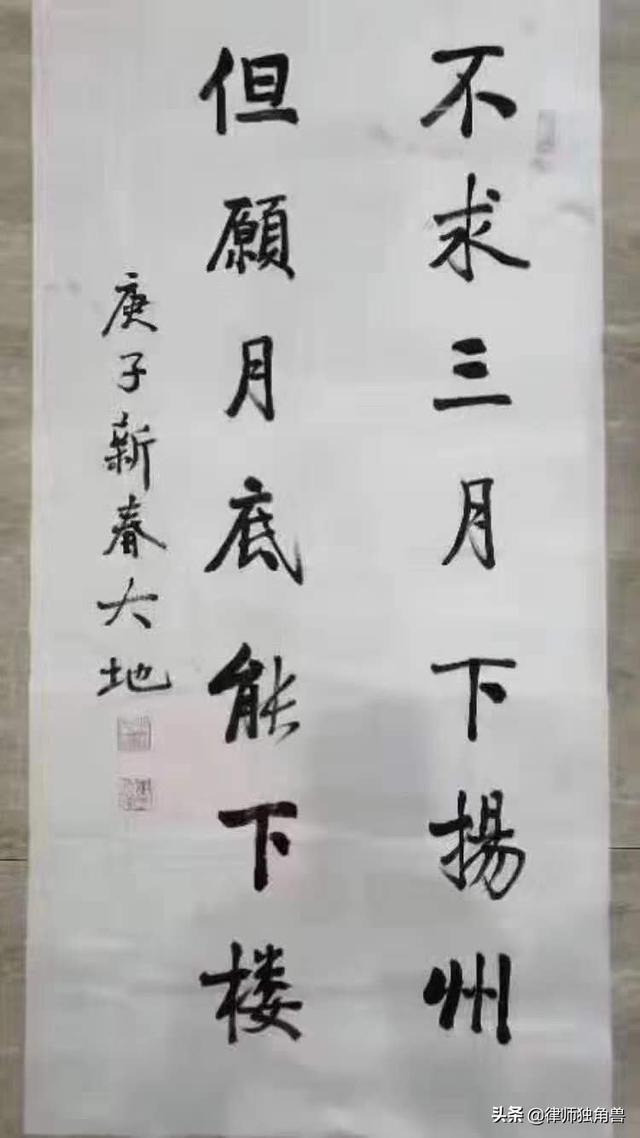 不求三月下揚州
但願月底能下楼
庚子新春大地
头条 @律师独角兽